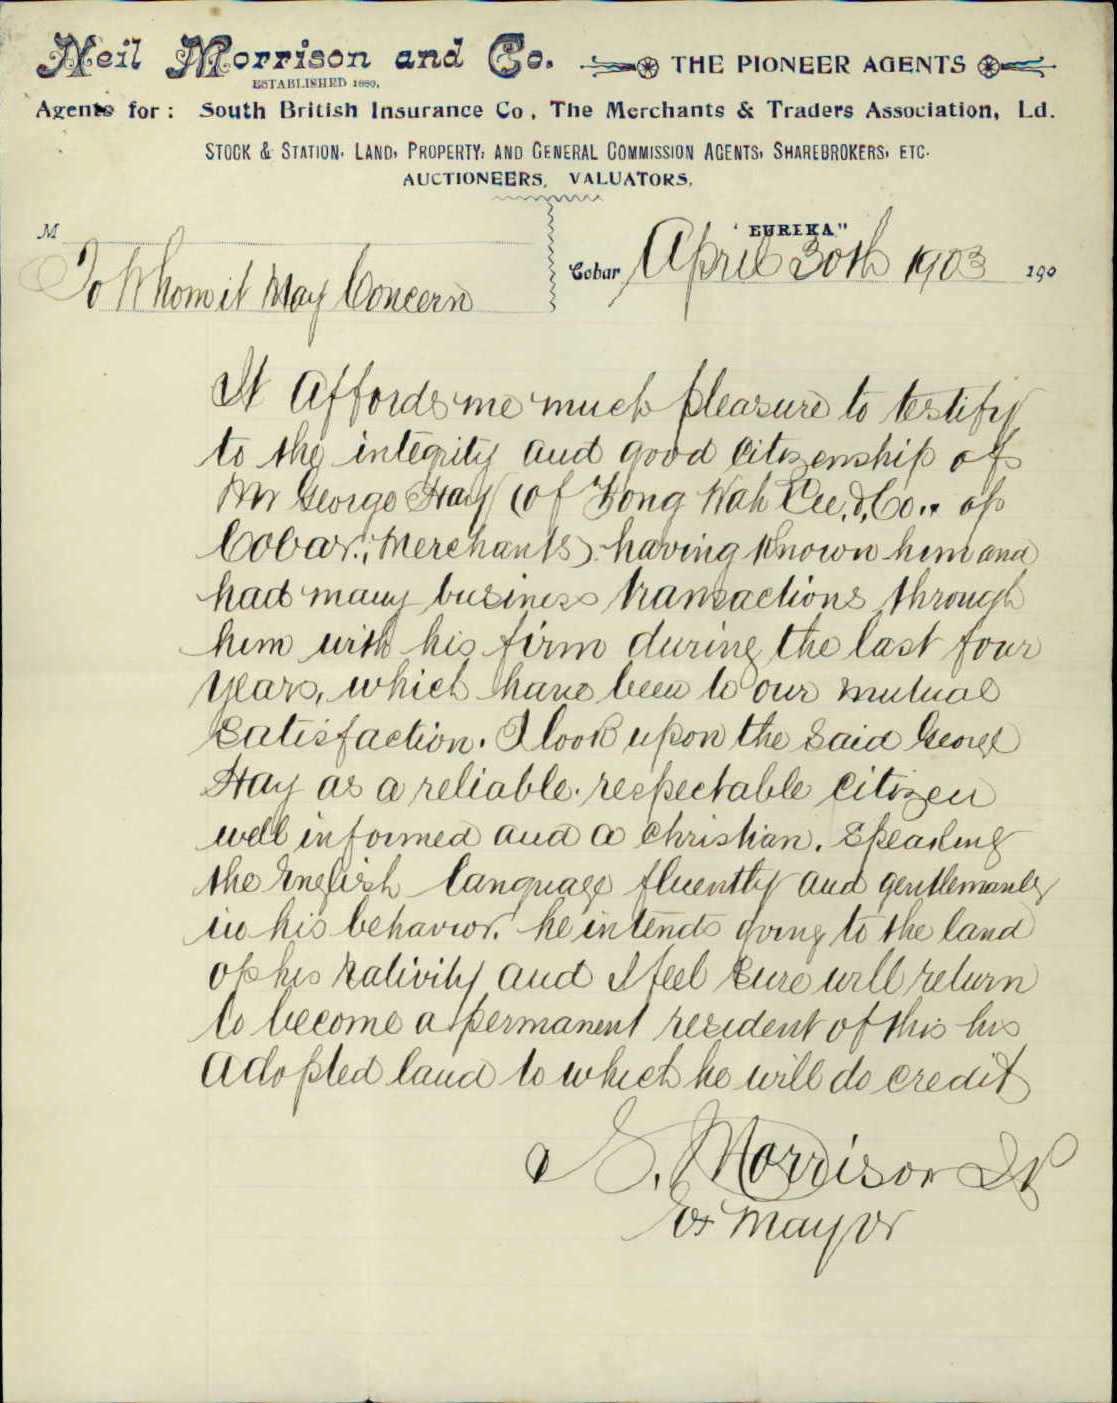 Neil Morrison and Co. THE PIONEER AGENTS
ESTABLISHED 1880.
Agents for: South British Insurance Co, The Merchants & Traders Association, Ld.
STOCK & STATION, LAND, PROPERTY, AND GENERAL COMMISSION AGENTS, SHAREBROKERS, ETC.
AUCTIONEERS, VALUATORS.
"EUREKA"
M
Cobar April 30th 1903 190
To Whom it May Concern
It affords me much pleasure to testify
to the integrity and good citizenship of
Mr George Hay (of Kong Wah Lee & Co., of
Cobar, Merchants) having known him and
had many business transactions through
him with his firm during the last four
years, which have been to our mutual
satisfaction. I look upon the said George
Hay as a reliable respectable citizen
well informed and a christian. Speaking
the English language fluently and gentlemanly
in his behavior. he intends going to the land
of his nativity and I feel sure will return
to become a permanent resident of this his
adopted land to which he will do credit
Morrison JP
Ex Mayor